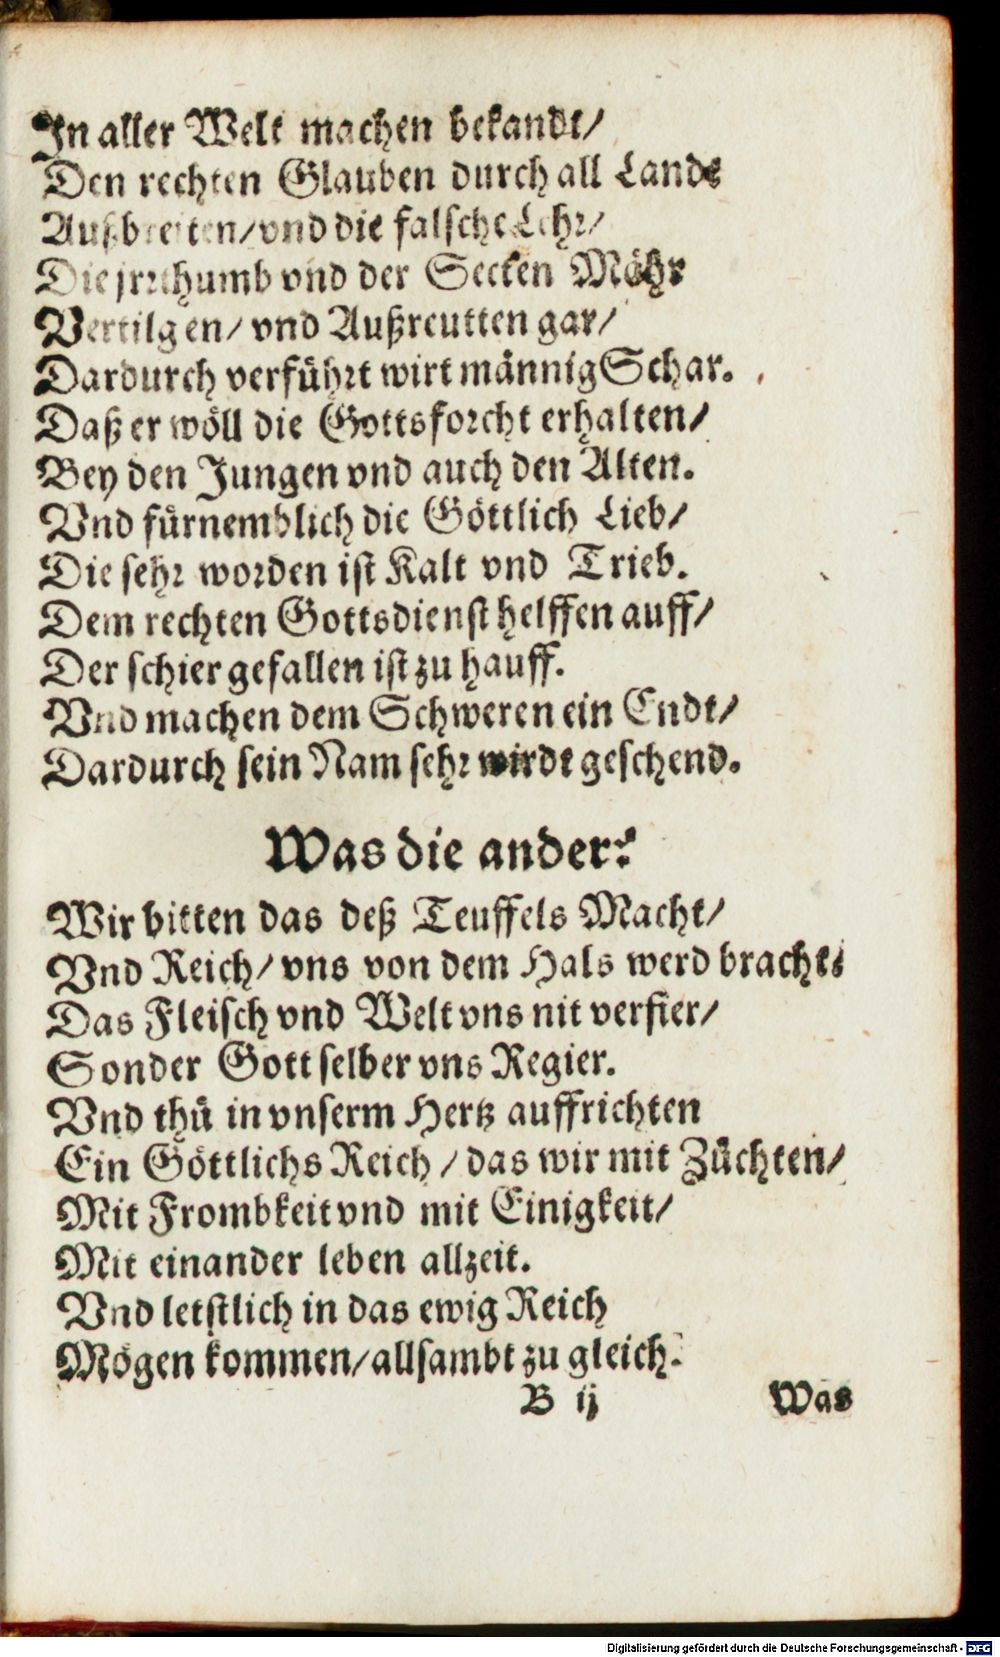 In aller Welt machen bekandt/
Den rechten Glauben durch all Lande
Außbreiten/vnd die falsche Lehr/
Die jrrthumb vnd der Secten Mähr
Vertilgen/ vnd Außreutten gar/
Dardurch verführt wirt männig Schar.
Daß er wöll die Gottsforcht erhalten/
Bey den Jungen vnd auch den Alten.
Vnd fürnemblich die Göttlich Lieb/
Die sehr worden ist Kalt vnd Trieb.
Dem rechten Gottsdienst helffen auff/
Der schier gefallen ist zu hauff.
Vnd machen dem Schweren ein Endt/
Dardurch sein Nam sehr wirdt geschend.
Was die ander?
Wir bitten das deß Teuffels Macht/
Vnd Reich/ vns von dem Hals werd bracht:
Das Fleisch vnd Welt vns nit verfier/
Sonder Gott selber vns Regier.
Vnd thü in vnserm Hertz auffrichten
Ein Göttlichs Reich / das wir mit Züchten/
Mit Frombkeit vnd mit Einigkeit/
Mit einander leben allzeit.
Vnd letstlich in das ewig Reich
Mögen kommen/allsambt zu gleich.
B ij Was
Digitalisierung gefördert durch die Deutsche Forschungsgemeinschaft - DFG